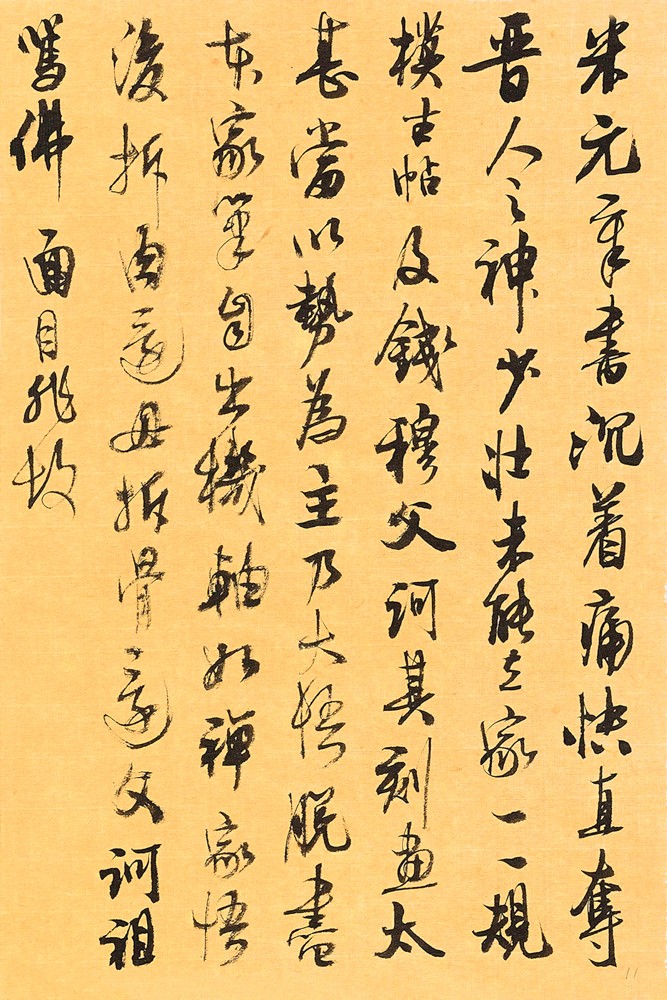 米元章書沉着痛快直奪
晉人之神少壯未能立家一一規
模古帖及錢穆父訶其刻畫太
甚當以勢為主乃大悟脫盡
本家筆自出機軸如禪家悟
後拆肉還母拆骨還父訶祖
罵佛面目非故
11